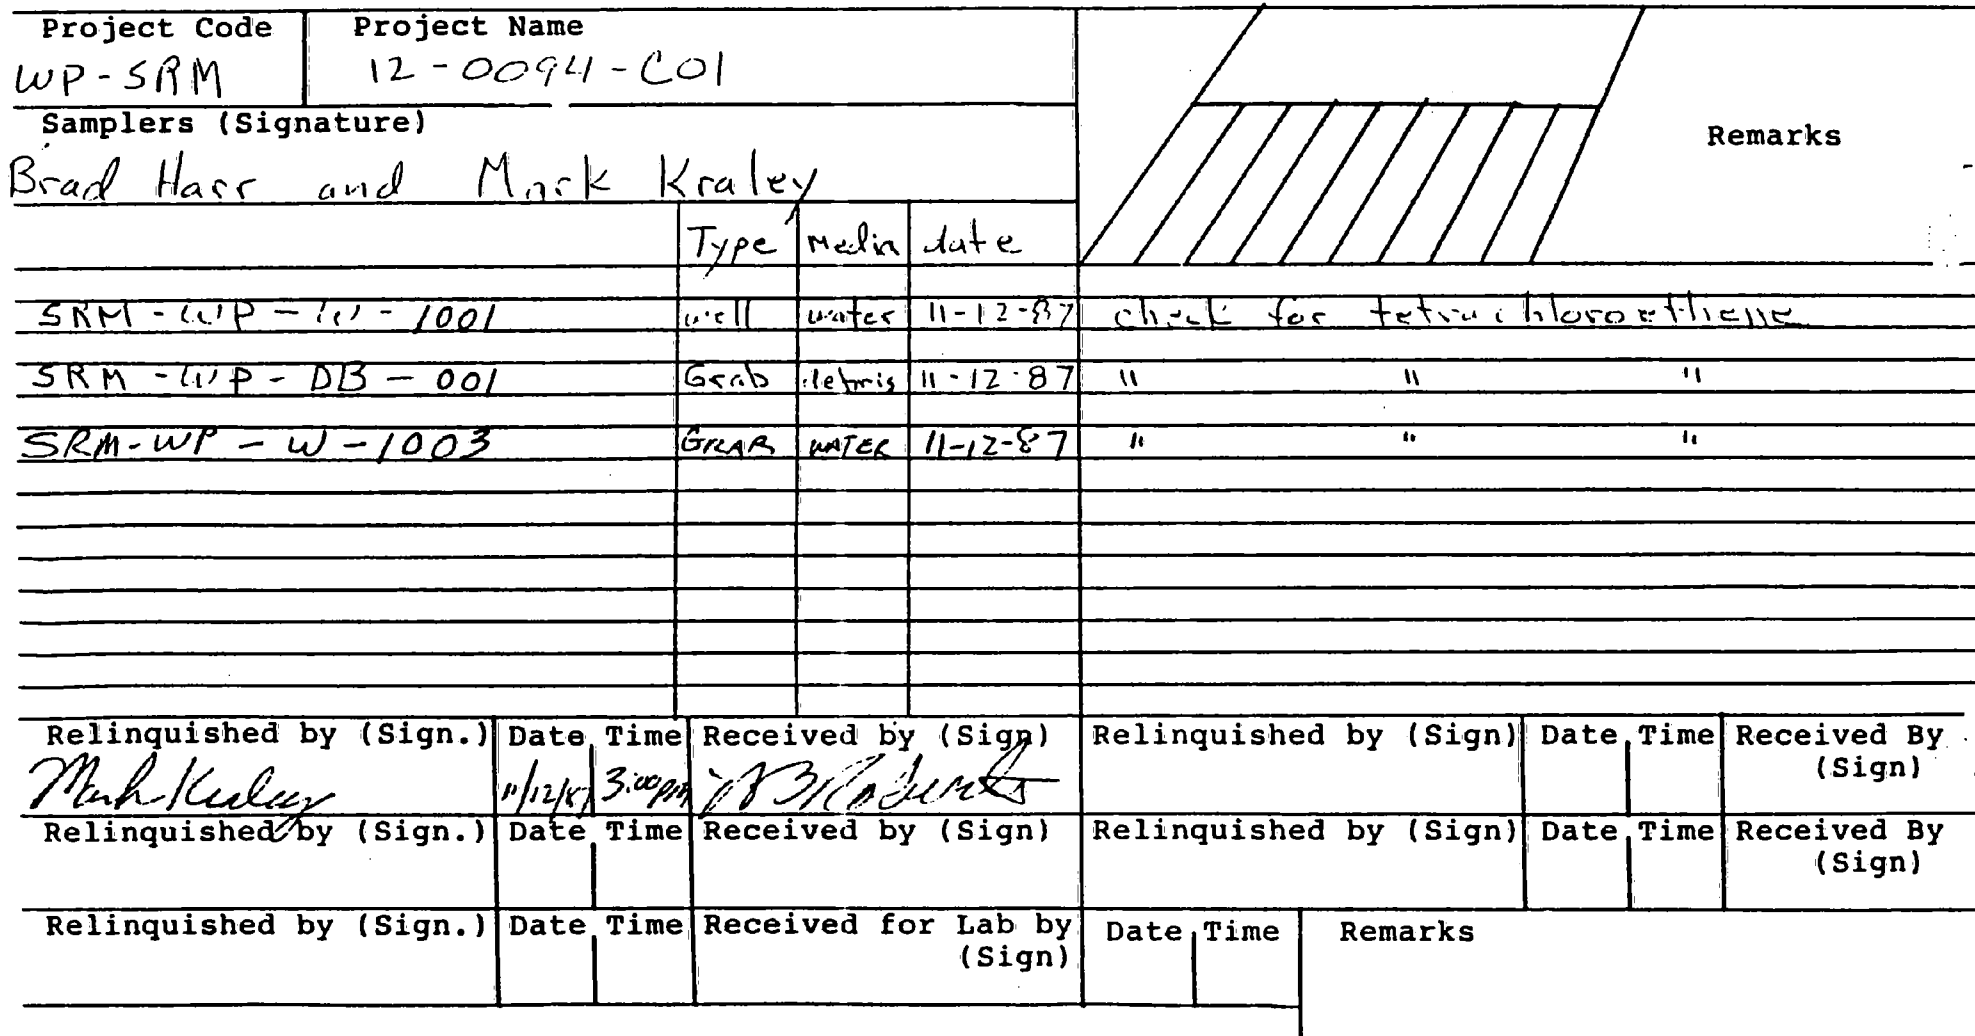 Project Code Project Name
WP-SRM 12-0094-C01
Samplers (Signature)
Remarks
Brad Harr and Mark Kraley
Type Media date
SRM-WP-W-1001 well water 11-12-87 check for tetrachloroethene
SRM-WP-DB-001 Grab debris 11-12-87 " " "
SRM-WP-W-1003 GRAB WATER 11-12-87 " " "
Relinquished by (Sign.) Date Time Received by (Sign) Relinquished by (Sign) Date Time Received By (Sign)
Mark Kraley 11/12/87 3:00pm Roberts
Relinquished by (Sign.) Date Time Received by (Sign) Relinquished by (Sign) Date Time Received By (Sign)
Relinquished by (Sign.) Date Time Received for Lab by (Sign) Date Time Remarks